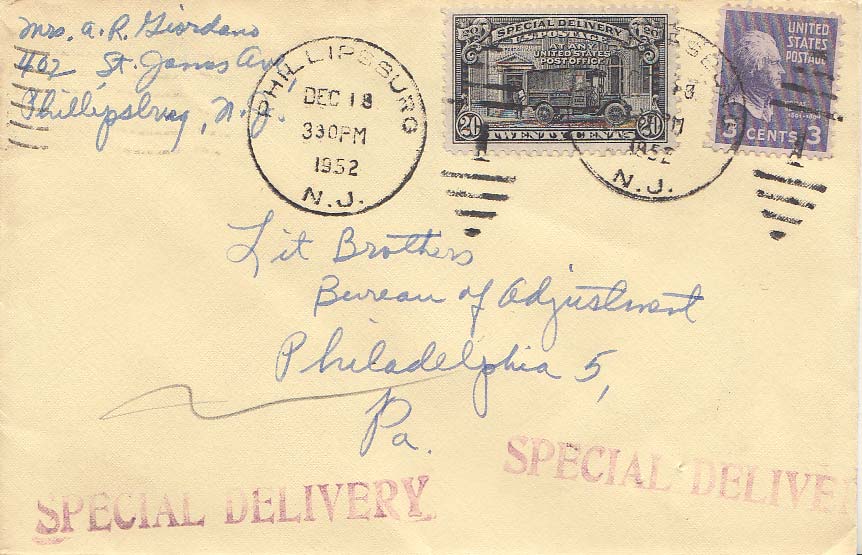 Mrs. A. R. Giordano
402 St. James Av.
Phillipsburg, N. J.
PHILLIPSBURG
DEC 18
330PM
1952
N.J.
SPECIAL DELIVERY
20 U.S. POSTAGE 20
AT ANY
UNITED STATES
POST OFFICE
20 TWENTY CENTS 20
1952
N.J.
UNITED
STATES
POSTAGE
3 CENTS 3
Lit Brothers
Bureau of Adjustment
Philadelphia 5,
Pa.
SPECIAL DELIVERY
SPECIAL DELIVER